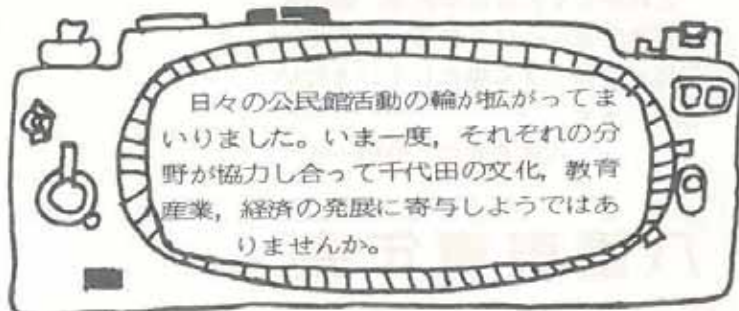 日々の公民館活動の輪が拡がってま
いりました。いま一度，それぞれの分
野が協力し合って千代田の文化，教育
産業，経済の発展に寄与しようではあ
りませんか。